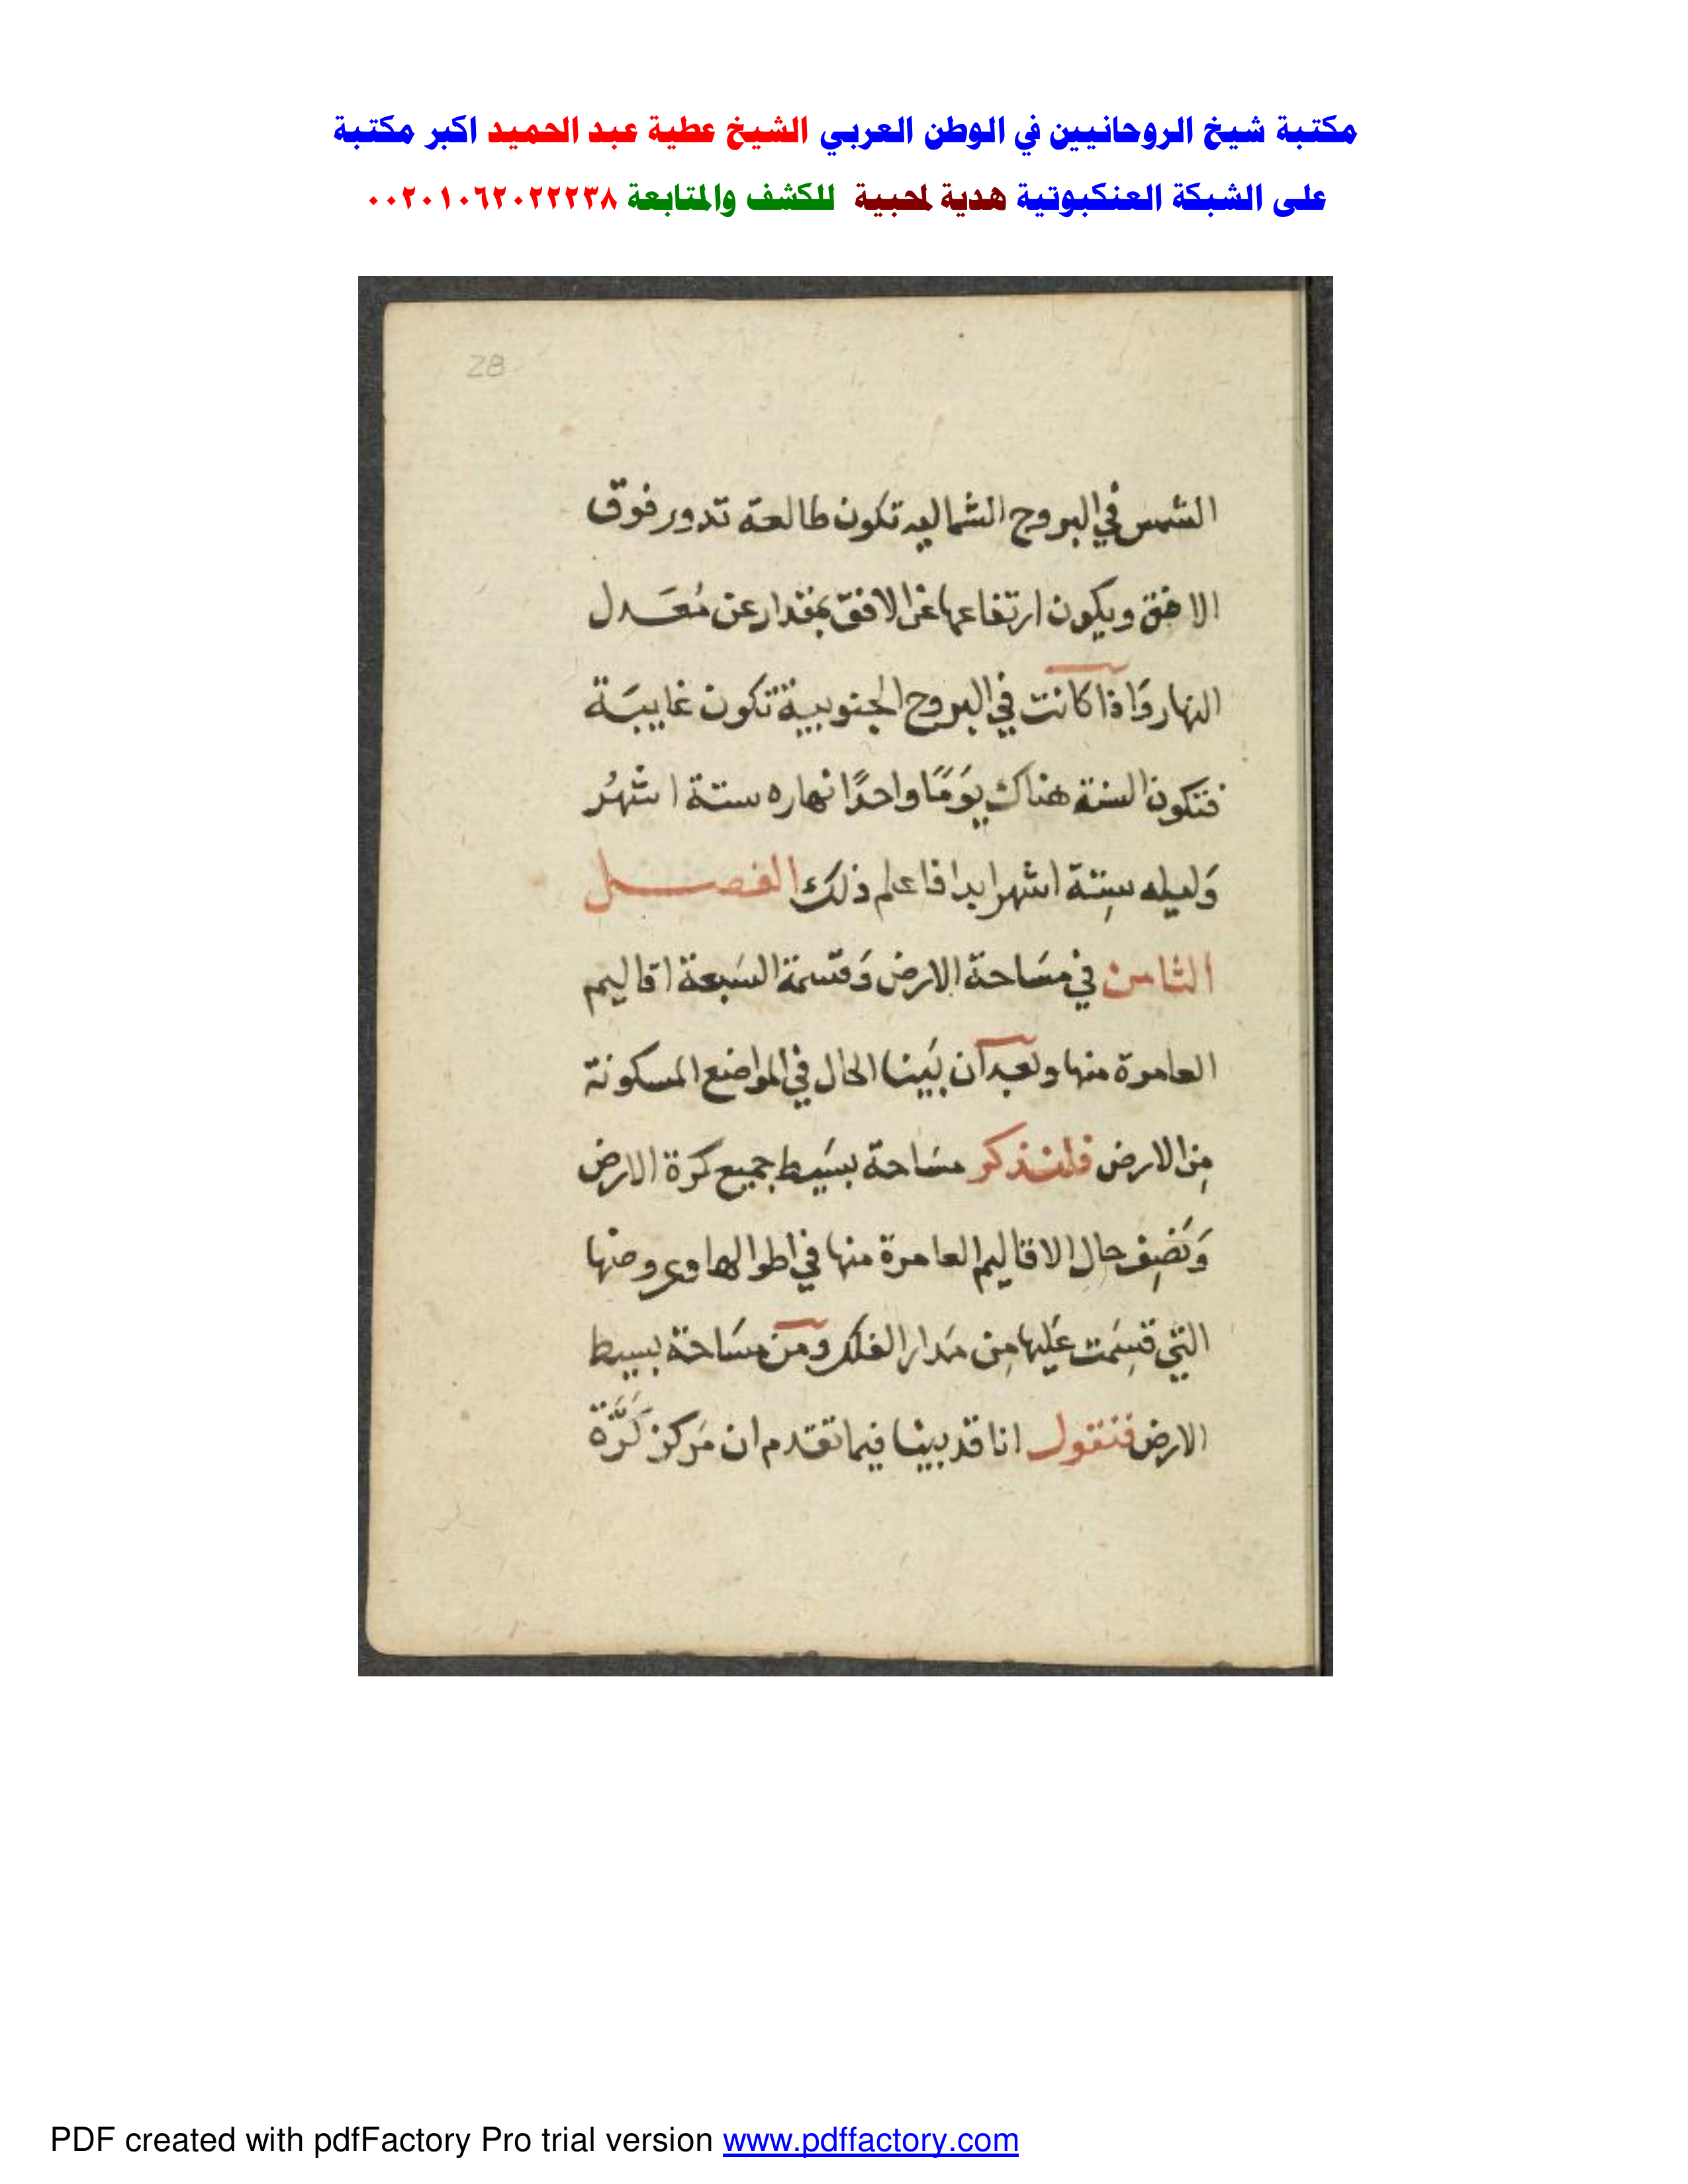 مكتبة شيخ الروحانيين في الوطن العربي الشيخ عطية عبد الحميد اكبر مكتبة
على الشبكة العنكبوتية هدية لمحبية للكشف والمتابعة ٠٠٢٠١٠٦٢٠٢٢٢٣٨
28
الشمس في البروج الشماليه تكون طالعة تدور فوق
الافق ويكون ارتفاعها عن الافق بمقدار عن مُعَدل
النهار وَاذا كانت في البروج الجنوبيية تكون غاييَبة
فتكون السنة هناك يَومًا واحدًا نهاره ستة اشهُر
وَليله سِتة اشهر ابدا فاعلم ذلك الفصل
الثامن في مسَاحة الارض وَقسمة السَبعة اقاليم
العامرة منها وبعد ان بَينا الحال في المواضع المسكونة
مِن الارض فلنذكر مسَاحة بسَيط جميع كرة الارض
وَنَصِف حال الاقاليم العامرة منها في اطوالها وعروضها
التي قسِمَت عَليها مِن مَدار الفلك ومن مسَاحة بسيط
الارض فنقول انا قد بينا فيما تقدم ان مَركز كَرَّة
PDF created with pdfFactory Pro trial version www.pdffactory.com